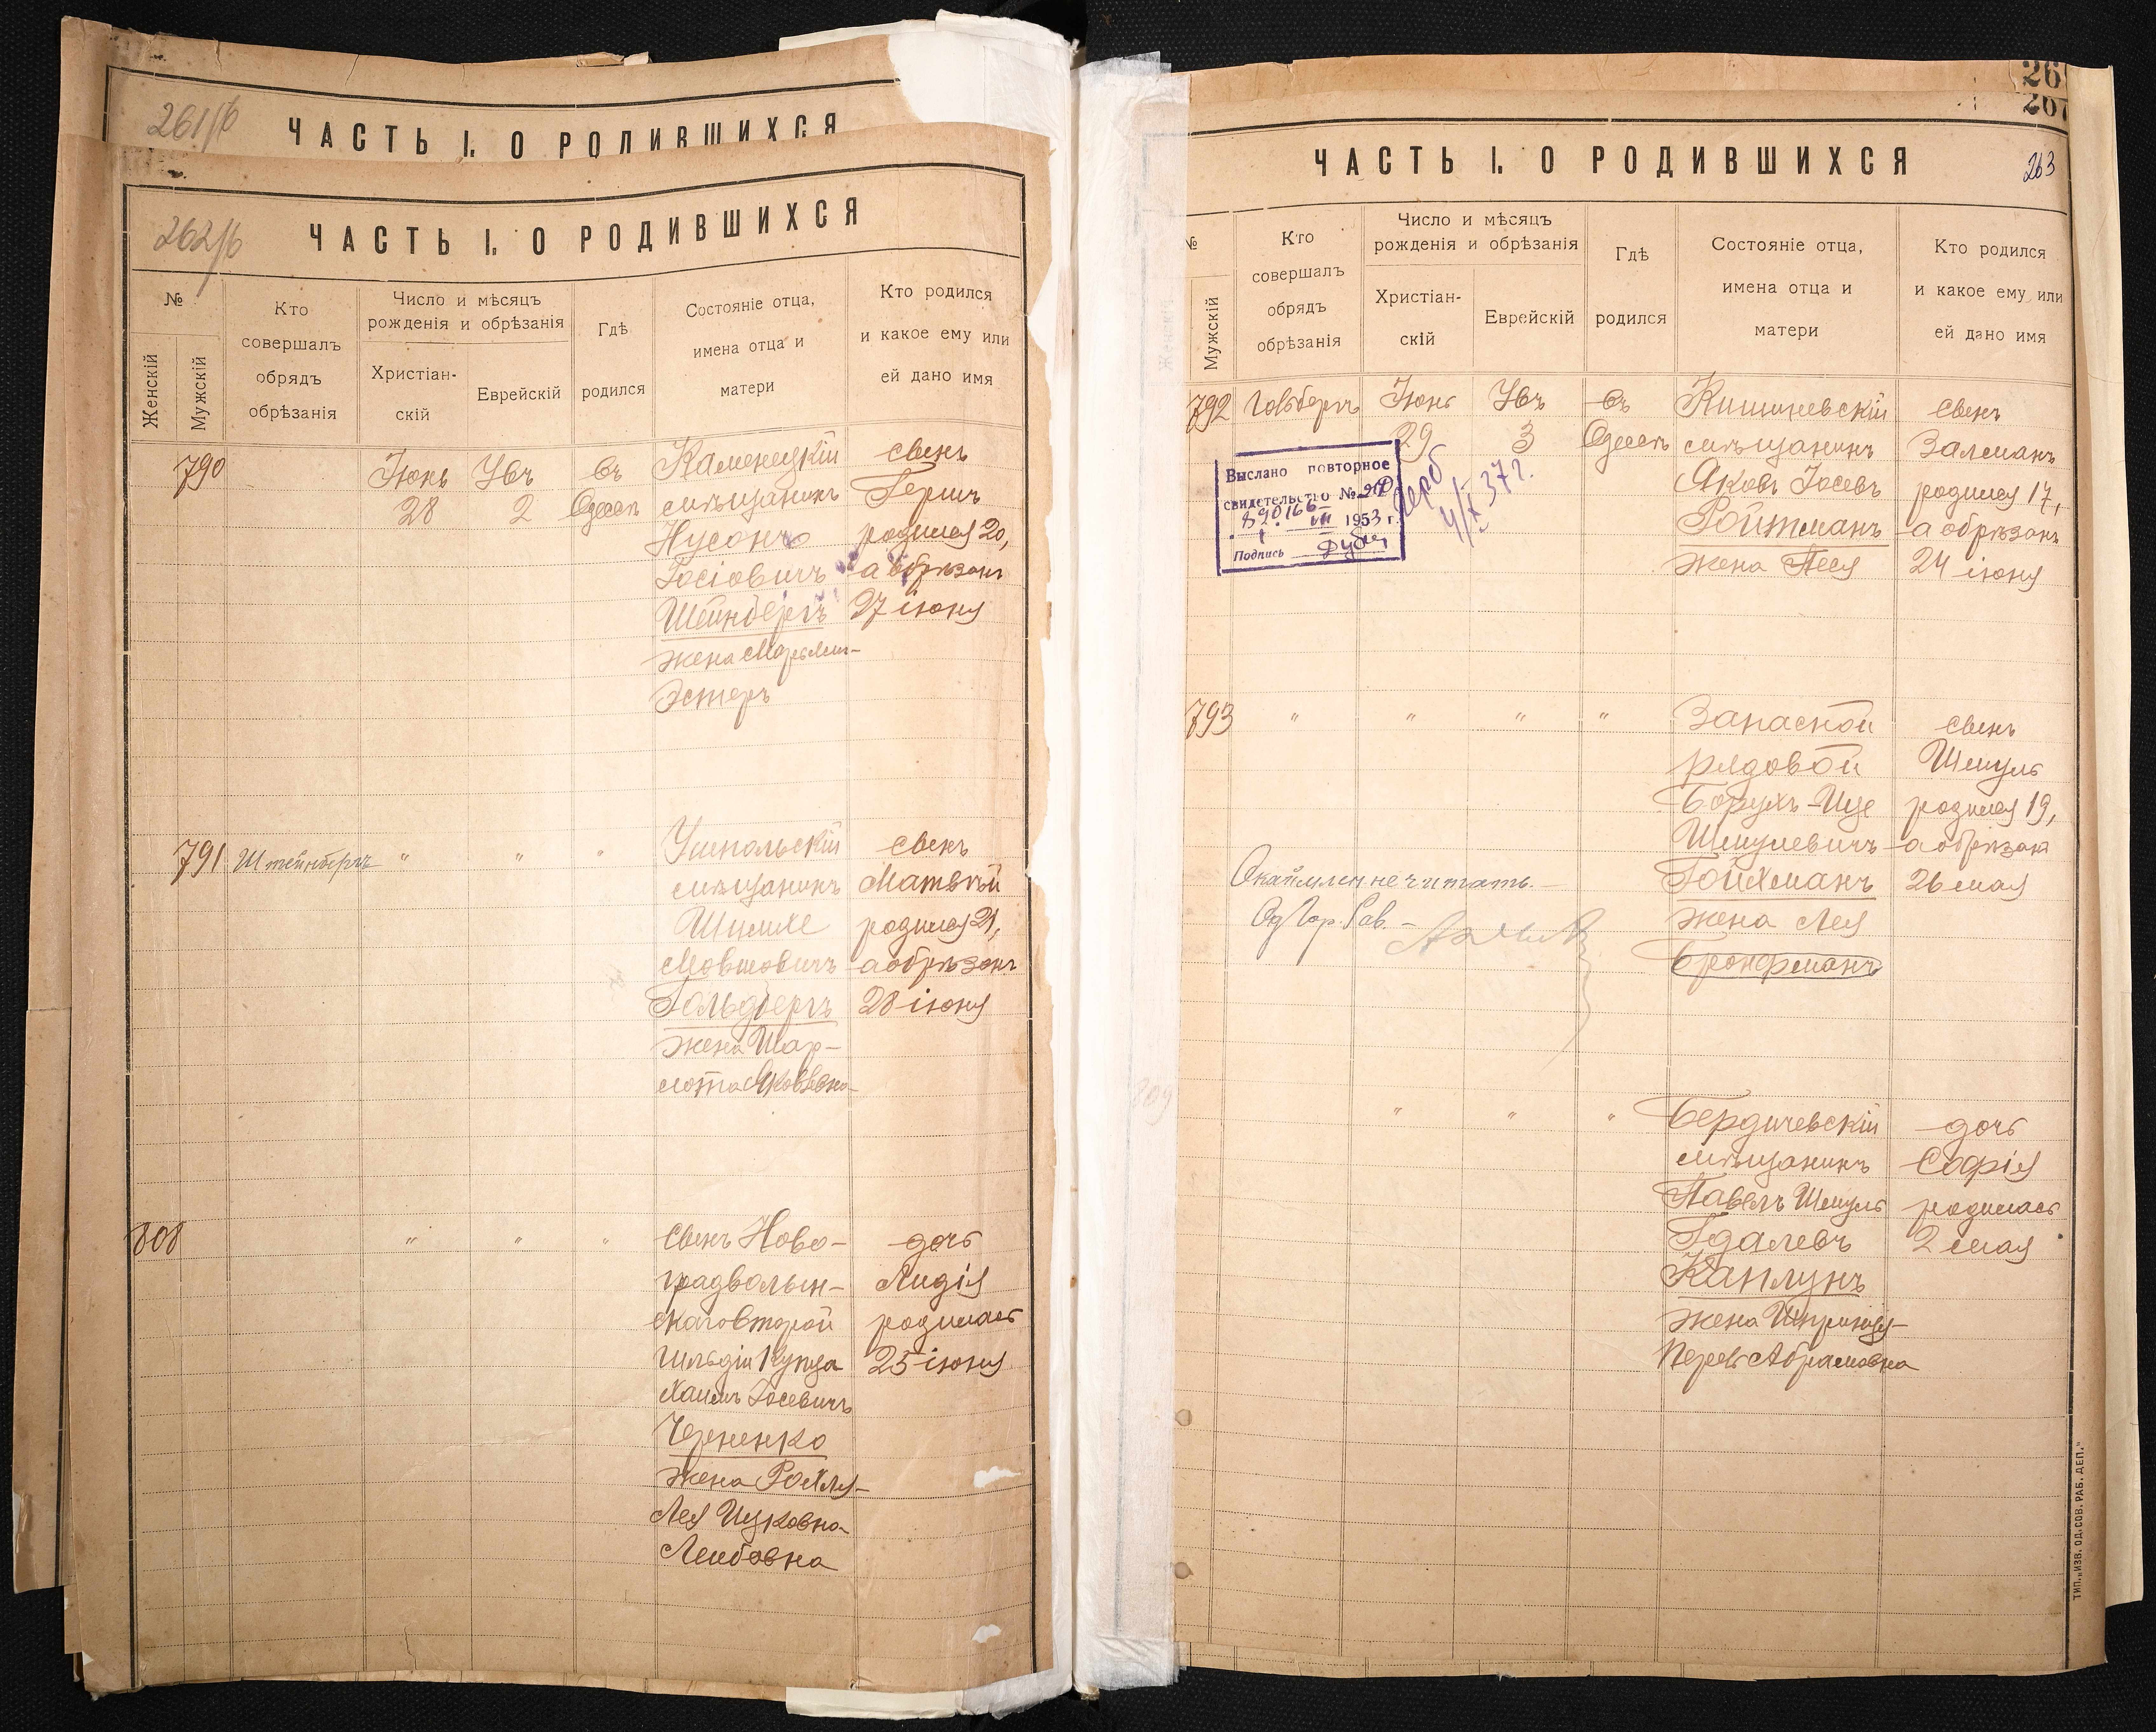 261/б
ЧАСТЬ I. О РОДИВШИХСЯ
262/б
ЧАСТЬ I. О РОДИВШИХСЯ
№
Женскій
Мужскій
Кто
совершалъ
обрядъ
обрѣзанія
Число и мѣсяцъ
рожденія и обрѣзанія
Христіан-
скій
Еврейскій
Гдѣ
родился
Состояніе отца,
имена отца и
матери
Кто родился
и какое ему или
ей дано имя
790
Іюнь
28
2
въ
Одессѣ
Каменецкій
мѣщанинъ
Нусонъ
Іосіовичъ
Шейнбергъ
жена Марьям-
Эстеръ
сынъ
Гершъ
родился 20,
а обрѣзанъ
27 іюня
791
Штейнбергъ
"
"
"
мѣщанинъ
Шимхе
Мовшовичъ
Гольдбергъ
жена Шар-
лота Яковлевна
сынъ
Матвѣй
родился 21,
а обрѣзанъ
28 іюня
808
"
"
"
сынъ Ново-
градволын-
скаго второй
гильдіи купца
Хаимъ Іосевичъ
Черненко
жена Рохля-
Лея Ицковна-
Лейбовна
дочь
Лидія
родилась
25 іюня
26
267
ЧАСТЬ I. О РОДИВШИХСЯ
263
№
Мужскій
Кто
совершалъ
обрядъ
обрѣзанія
Число и мѣсяцъ
рожденія и обрѣзанія
Христіан-
скій
Еврейскій
Гдѣ
родился
Состояніе отца,
имена отца и
матери
Кто родился
и какое ему или
ей дано имя
792
Гольдбергъ
Іюнь
29
3
въ
Одессѣ
Кишиневскій
мѣщанинъ
Яковъ Іосевъ
Ройтманъ
жена Песя
сынъ
Залманъ
родился 17,
а обрѣзанъ
24 іюня
Выслано повторное
свидетельство №
VII 1953 г.
Подпись
4/X 37 г.
793
"
"
"
"
Запасной
рядовой
Борухъ-Ице
Шмулевичъ
Гойхманъ
жена Лея
Бронфманъ
сынъ
Шмуль
родился 19,
а обрѣзан
26 мая
Окаймлен не читать.
Од Гор. Рав.
809
"
"
"
Бердичевскій
мѣщанинъ
Павелъ Шмуль
Гдалевъ
Каплунъ
жена Шпринця-
Перль Абрамовна
дочь
Софія
родилась
2 мая
ТИП. „ИЗВ. ОД. СОВ. РАБ. ДЕП."